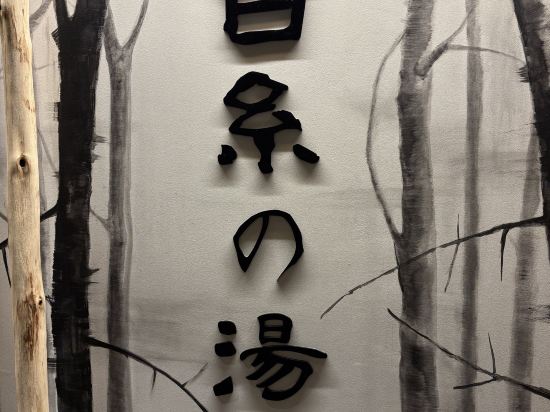 白糸の湯